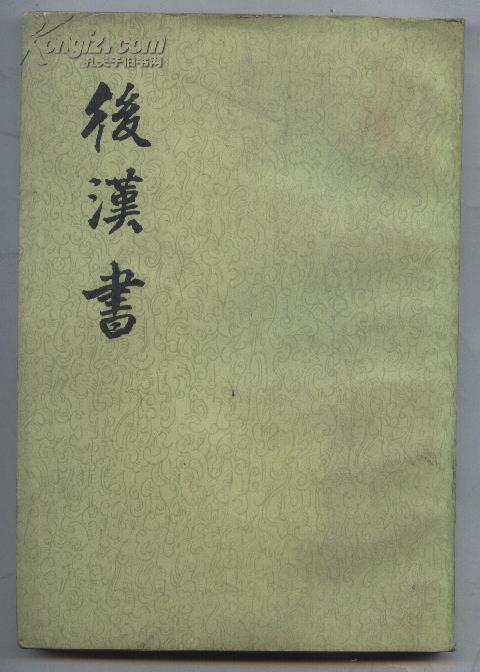 Kongfz.com
孔夫子旧书网
後漢書